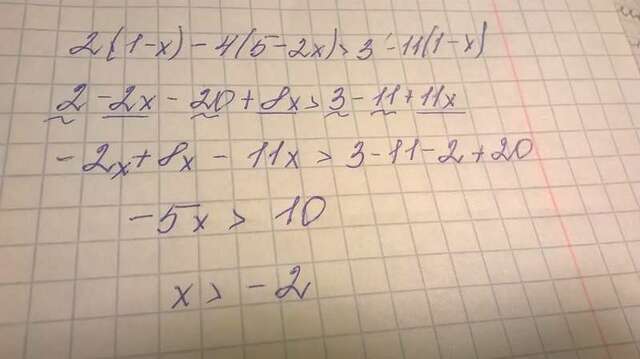 2(1-x)-4(5-2x)>3-11(1-x)
2-2x-20+8x>3-11+11x
-2x+8x-11x>3-11-2+20
-5x>10
x>-2